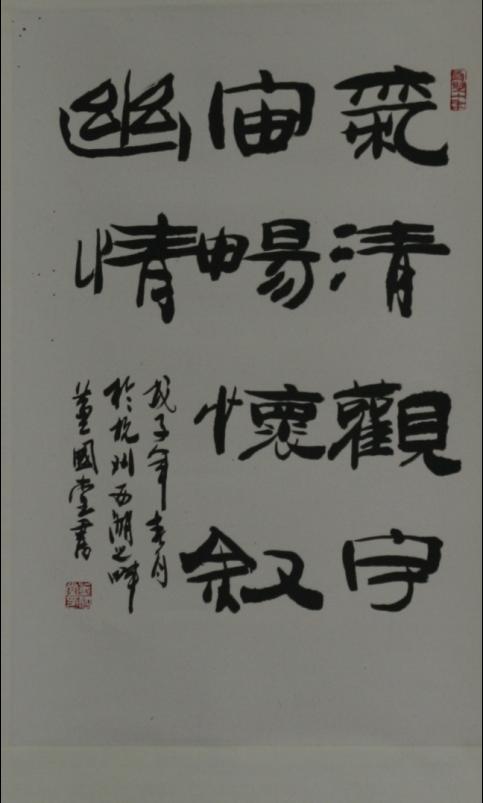 氣清觀宇
宙暢懷叙
幽情
戊子年春月
於杭州西湖之畔
董國堂書